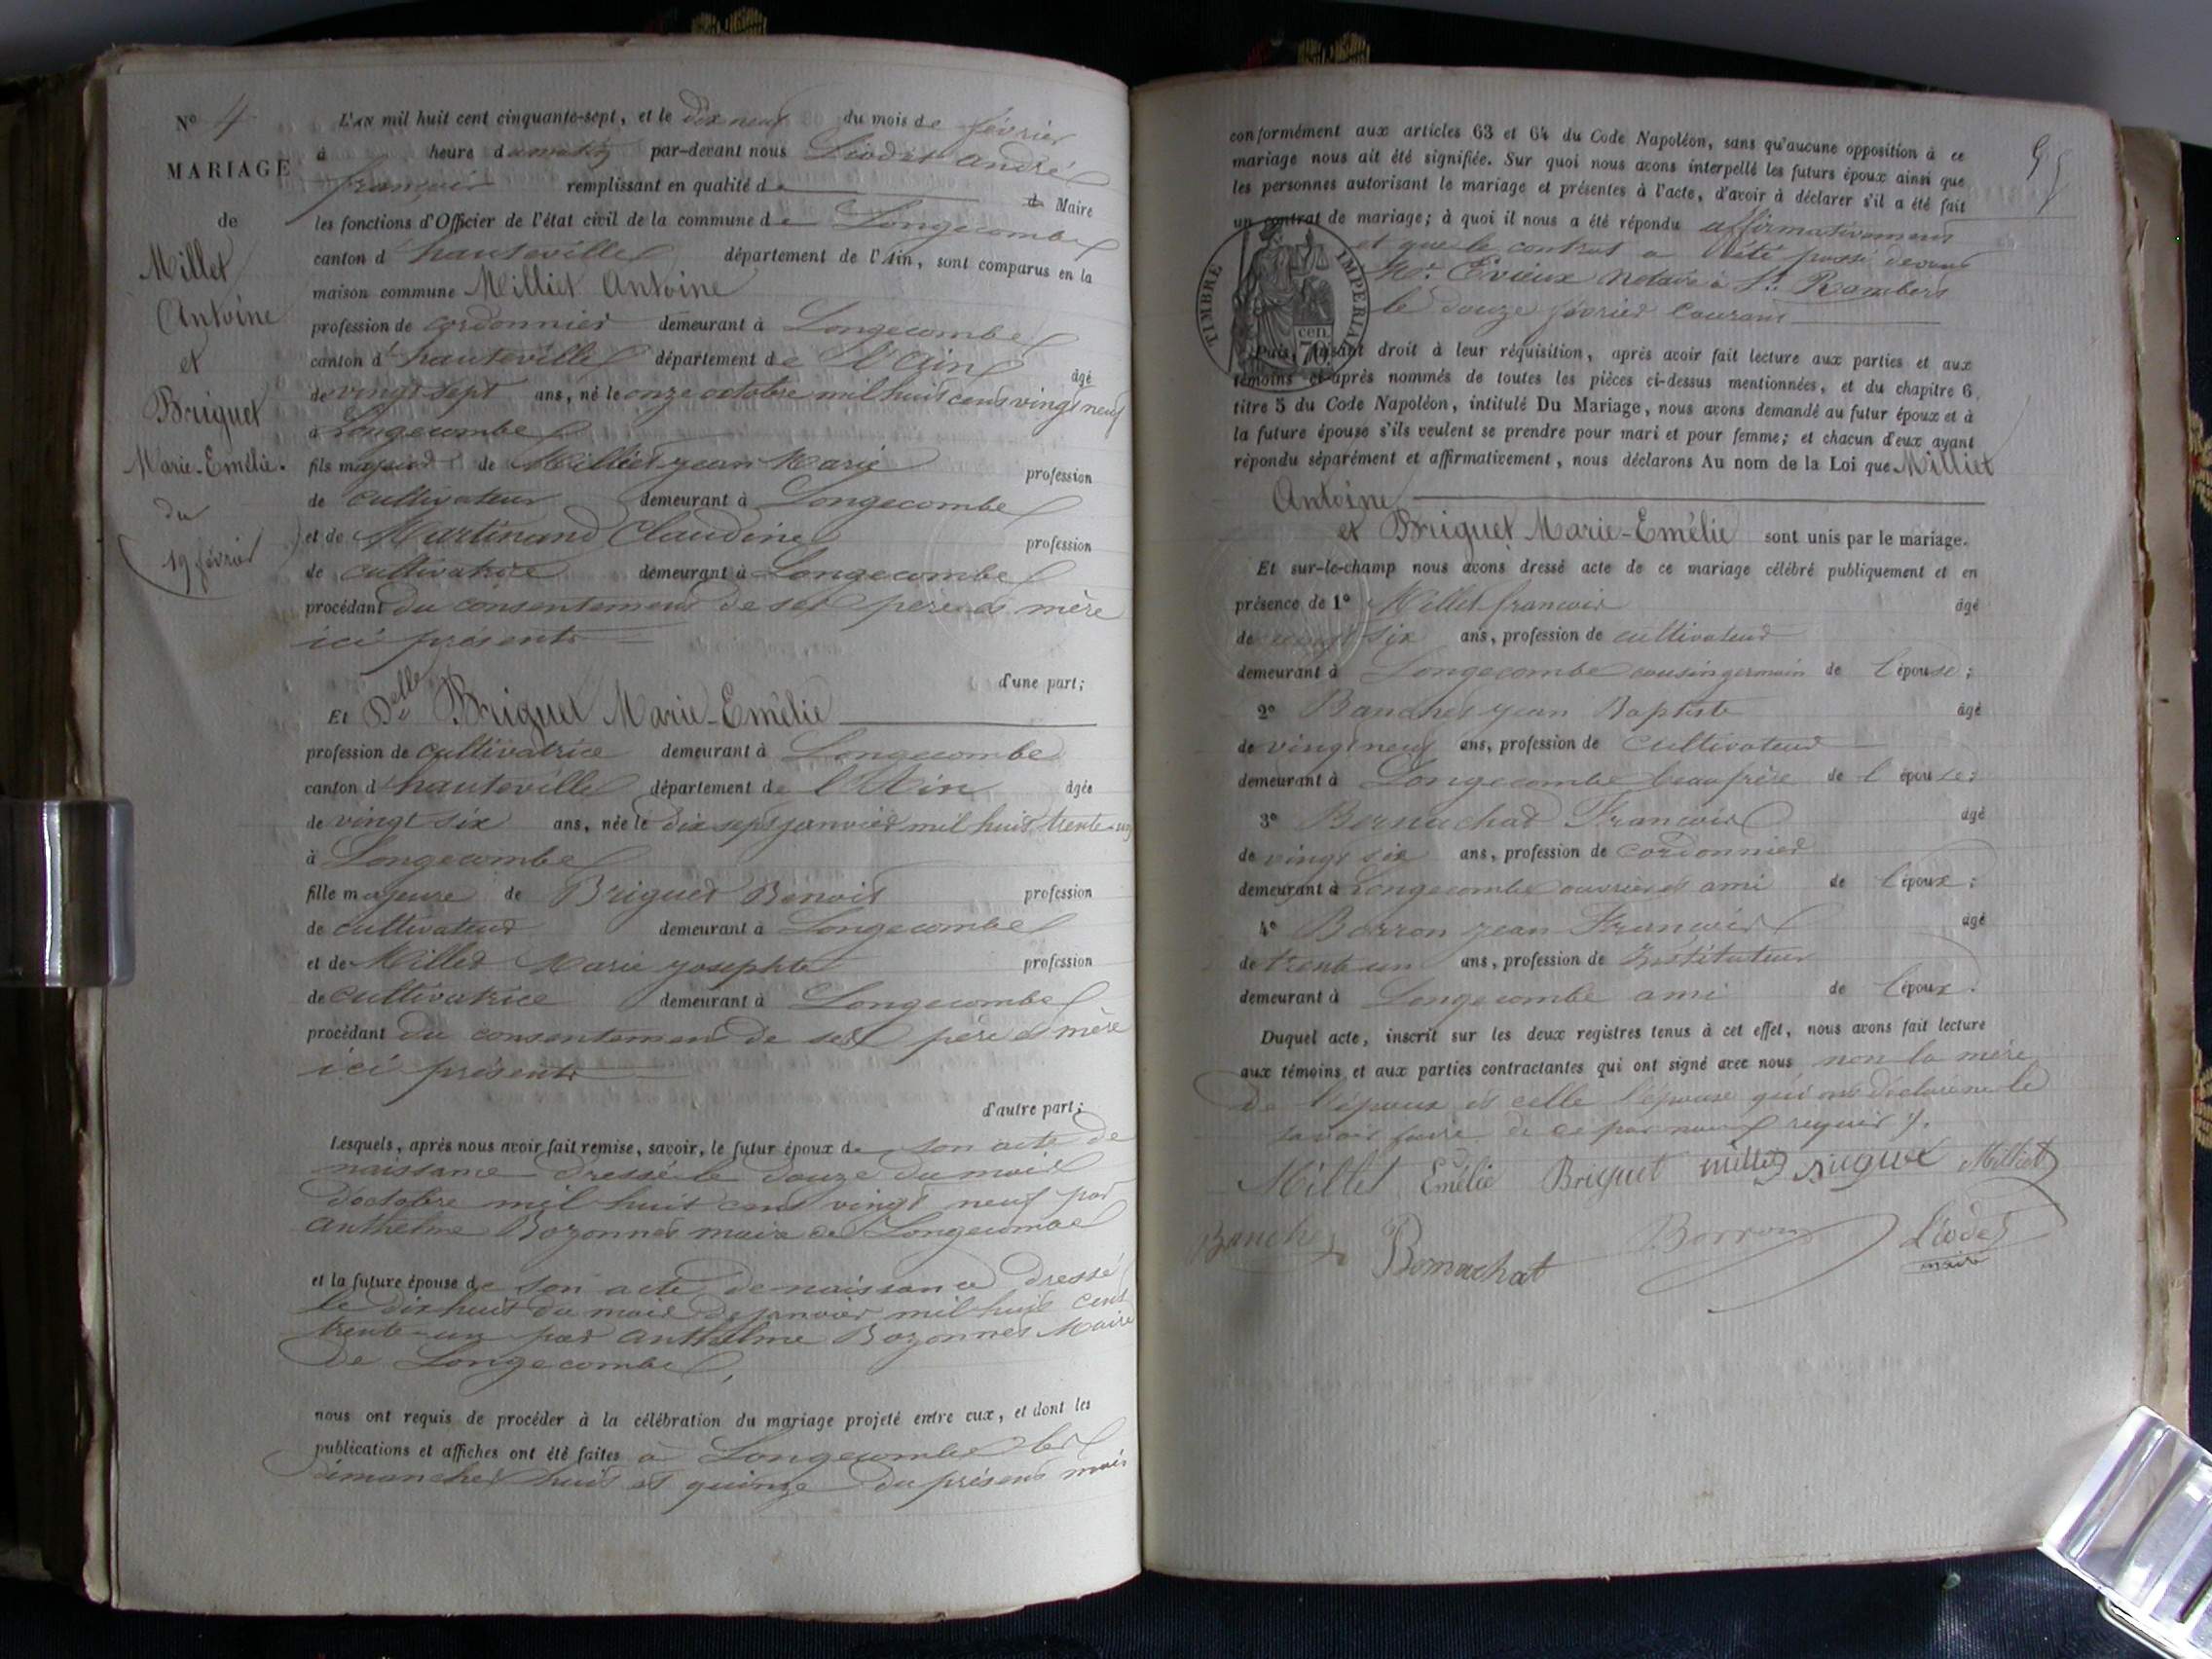 N° 4
MARIAGE
de
Millet
Antoine
et
Briguet
Marie-Emélie.
du
19 février
L'AN mil huit cent cinquante-sept, et le dix neuf du mois de février
à heure du matin par-devant nous Liodet André
françois remplissant en qualité de Maire
les fonctions d'Officier de l'état civil de la commune de Longecombe
canton d'hauteville département de l'Ain, sont comparus en la
maison commune Milliet Antoine
profession de cordonnier demeurant à Longecombe
canton d'hauteville département de l'Ain âgé
de vingt sept ans, né le onze octobre mil huit cent vingt neuf
à Longecombe
fils majeur de Milliet jean Marie profession
de cultivateur demeurant à Longecombe
et de Martinand Claudine profession
de cultivatrice demeurant à Longecombe
procédant du consentement de ses père et mère
ici présents
d'une part;
Et Delle Briguet Marie-Emélie
profession de cultivatrice demeurant à Longecombe
canton d'hauteville département de l'Ain âgée
de vingt six ans, née le dix sept janvier mil huit trente-un
à Longecombe
fille majeure de Briguet Benoit profession
de cultivateur demeurant à Longecombe
et de Millet Marie josephte profession
de cultivatrice demeurant à Longecombe
procédant du consentement de ses père et mère
ici présents
d'autre part;
Lesquels, après nous avoir fait remise, savoir, le futur époux de son acte de
naissance dressé le douze du mois
d'octobre mil huit cent vingt neuf par
anthelme Bozonnet maire de Longecombe
et la future épouse de son acte de naissance dressé
le dix huit du mois de janvier mil huit cent
trente-un par anthelme Bozonnet Maire
de Longecombe,
nous ont requis de procéder à la célébration du mariage projeté entre eux, et dont les
publications et affiches ont été faites à Longecombe les
dimanches huit et quinze du présent mois
conformément aux articles 63 et 64 du Code Napoléon, sans qu'aucune opposition à ce
mariage nous ait été signifiée. Sur quoi nous avons interpellé les futurs époux ainsi que
les personnes autorisant le mariage et présentes à l'acte, d'avoir à déclarer s'il a été fait
un contrat de mariage; à quoi il nous a été répondu affirmativement
et que le contrat a été passé devant
Me. Evieux notaire à St. Rambert
le douze février Courant
TIMBRE IMPERIAL
70 cen.
Puis, faisant droit à leur réquisition, après avoir fait lecture aux parties et aux
témoins ci-après nommés de toutes les pièces ci-dessus mentionnées, et du chapitre 6,
titre 5 du Code Napoléon, intitulé Du Mariage, nous avons demandé au futur époux et à
la future épouse s'ils veulent se prendre pour mari et pour femme; et chacun d'eux ayant
répondu séparément et affirmativement, nous déclarons Au nom de la Loi que Milliet
Antoine
et Briguet Marie-Emélie sont unis par le mariage.
Et sur-le-champ nous avons dressé acte de ce mariage célébré publiquement et en
présence de 1° Millet françois âgé
de vingt six ans, profession de cultivateur
demeurant à Longecombe cousin germain de l'épouse;
2° Banchet jean Baptiste âgé
de vingt neuf ans, profession de Cultivateur
demeurant à Longecombe beau frère de l'épouse;
3° Bernachat François âgé
de vingt six ans, profession de cordonnier
demeurant à Longecombe ouvrier et ami de l'époux;
4° Borron jean François âgé
de trente un ans, profession de Instituteur
demeurant à Longecombe ami de l'époux.
Duquel acte, inscrit sur les deux registres tenus à cet effet, nous avons fait lecture
aux témoins et aux parties contractantes qui ont signé avec nous non la mère
de l'époux et celle l'épouse qui ont déclaré ne le
savoir faire de ce par nous requis.
Millet Emélie Briguet Milliet
Banchet Bernachat Borron Liodet
maire